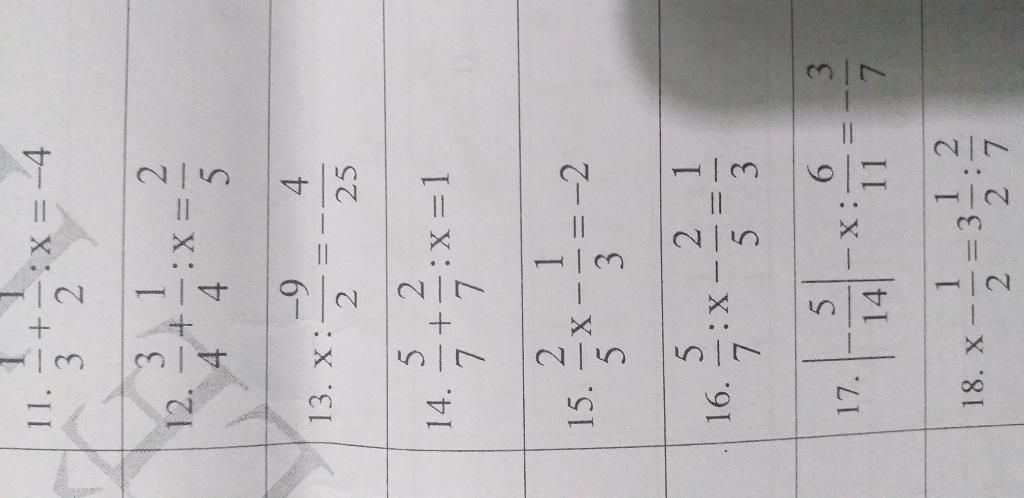 11. 1/3 + 1/2 : x = -4
12. 3/4 + 1/4 : x = 2/5
13. x : -9/2 = -4/25
14. 5/7 + 2/7 : x = 1
15. 2/5 x - 1/3 = -2
16. 5/7 : x - 2/5 = 1/3
17. |-5/14| - x : 6/11 = -3/7
18. x - 1/2 = 3 1/2 : 2/7